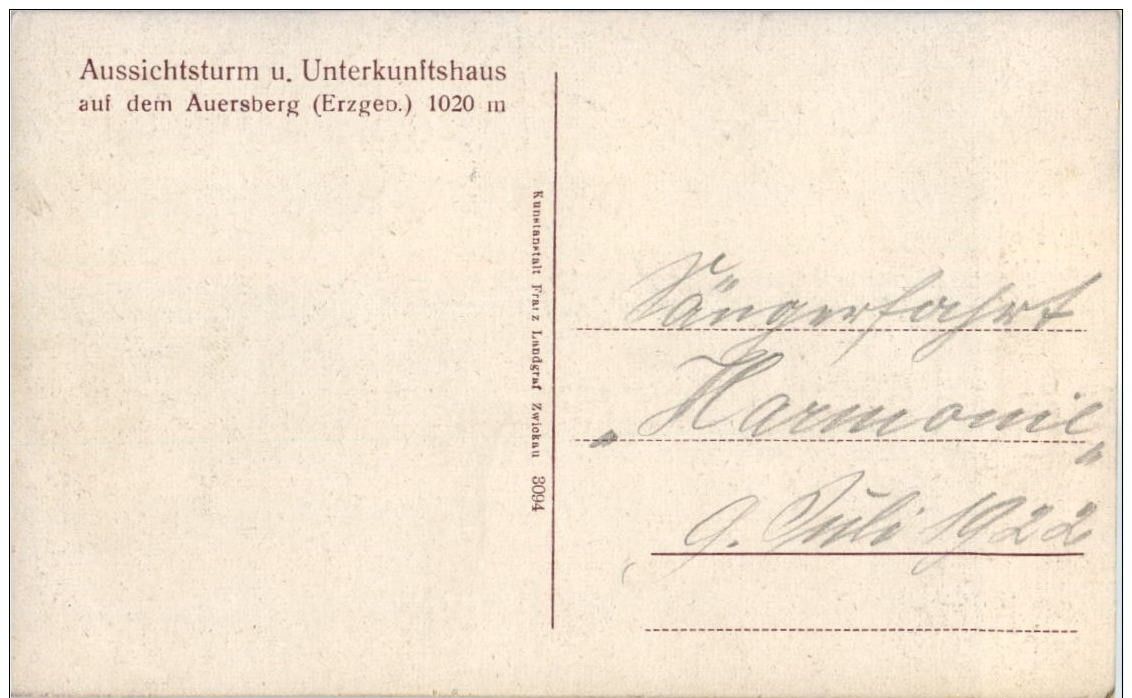 Aussichtsturm u. Unterkunftshaus
auf dem Auersberg (Erzgeb.) 1020 m
Kunstanstalt Franz Landgraf Zwickau 3094
Sängerfahrt
„Harmonie"
9. Juli 1922